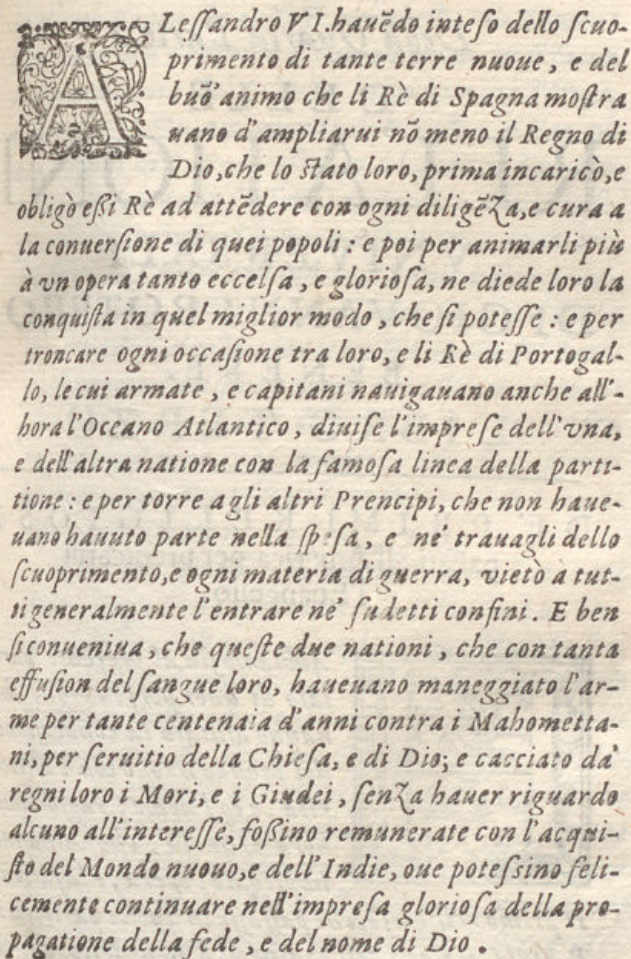 ALeſſandro VI. hauẽdo inteſo dello ſcuo-
primento di tante terre nuoue, e del
buõ'animo che li Rè di Spagna moſtra
uano d'ampliarui nõ meno il Regno di
Dio, che lo ſtato loro, prima incaricò, e
obligò eßi Rè ad attẽdere con ogni diligẽza, e cura a
la conuerſione di quei popoli: e poi per animarli più
à vn opera tanto eccelſa, e glorioſa, ne diede loro la
conquiſta in quel miglior modo, che ſi poteſſe: e per
troncare ogni occaſione tra loro, e li Rè di Portogal-
lo, le cui armate, e capitani nauigauano anche all'-
hora l'Oceano Atlantico, diuiſe l'impreſe dell'vna,
e dell'altra natione con la famoſa linea della parti-
tione: e per torre a gli altri Prencipi, che non haue-
uano hauuto parte nella ſpeſa, e ne' trauagli dello
ſcuoprimento, e ogni materia di guerra, vietò a tut-
ti generalmente l'entrare ne' ſudetti confini. E ben
ſi conueniua, che queſte due nationi, che con tanta
effuſion del ſangue loro, haueuano maneggiato l'ar-
me per tante centenaia d'anni contra i Mahometta-
ni, per ſeruitio della Chieſa, e di Dio; e cacciato da'
regni loro i Mori, e i Giudei, ſenza hauer riguardo
alcuno all'intereſſe, foßino remunerate con l'acqui-
ſto del Mondo nuouo, e dell'Indie, oue poteſsino feli-
cemente continuare nell'impreſa glorioſa della pro-
pagatione della fede, e del nome di Dio.